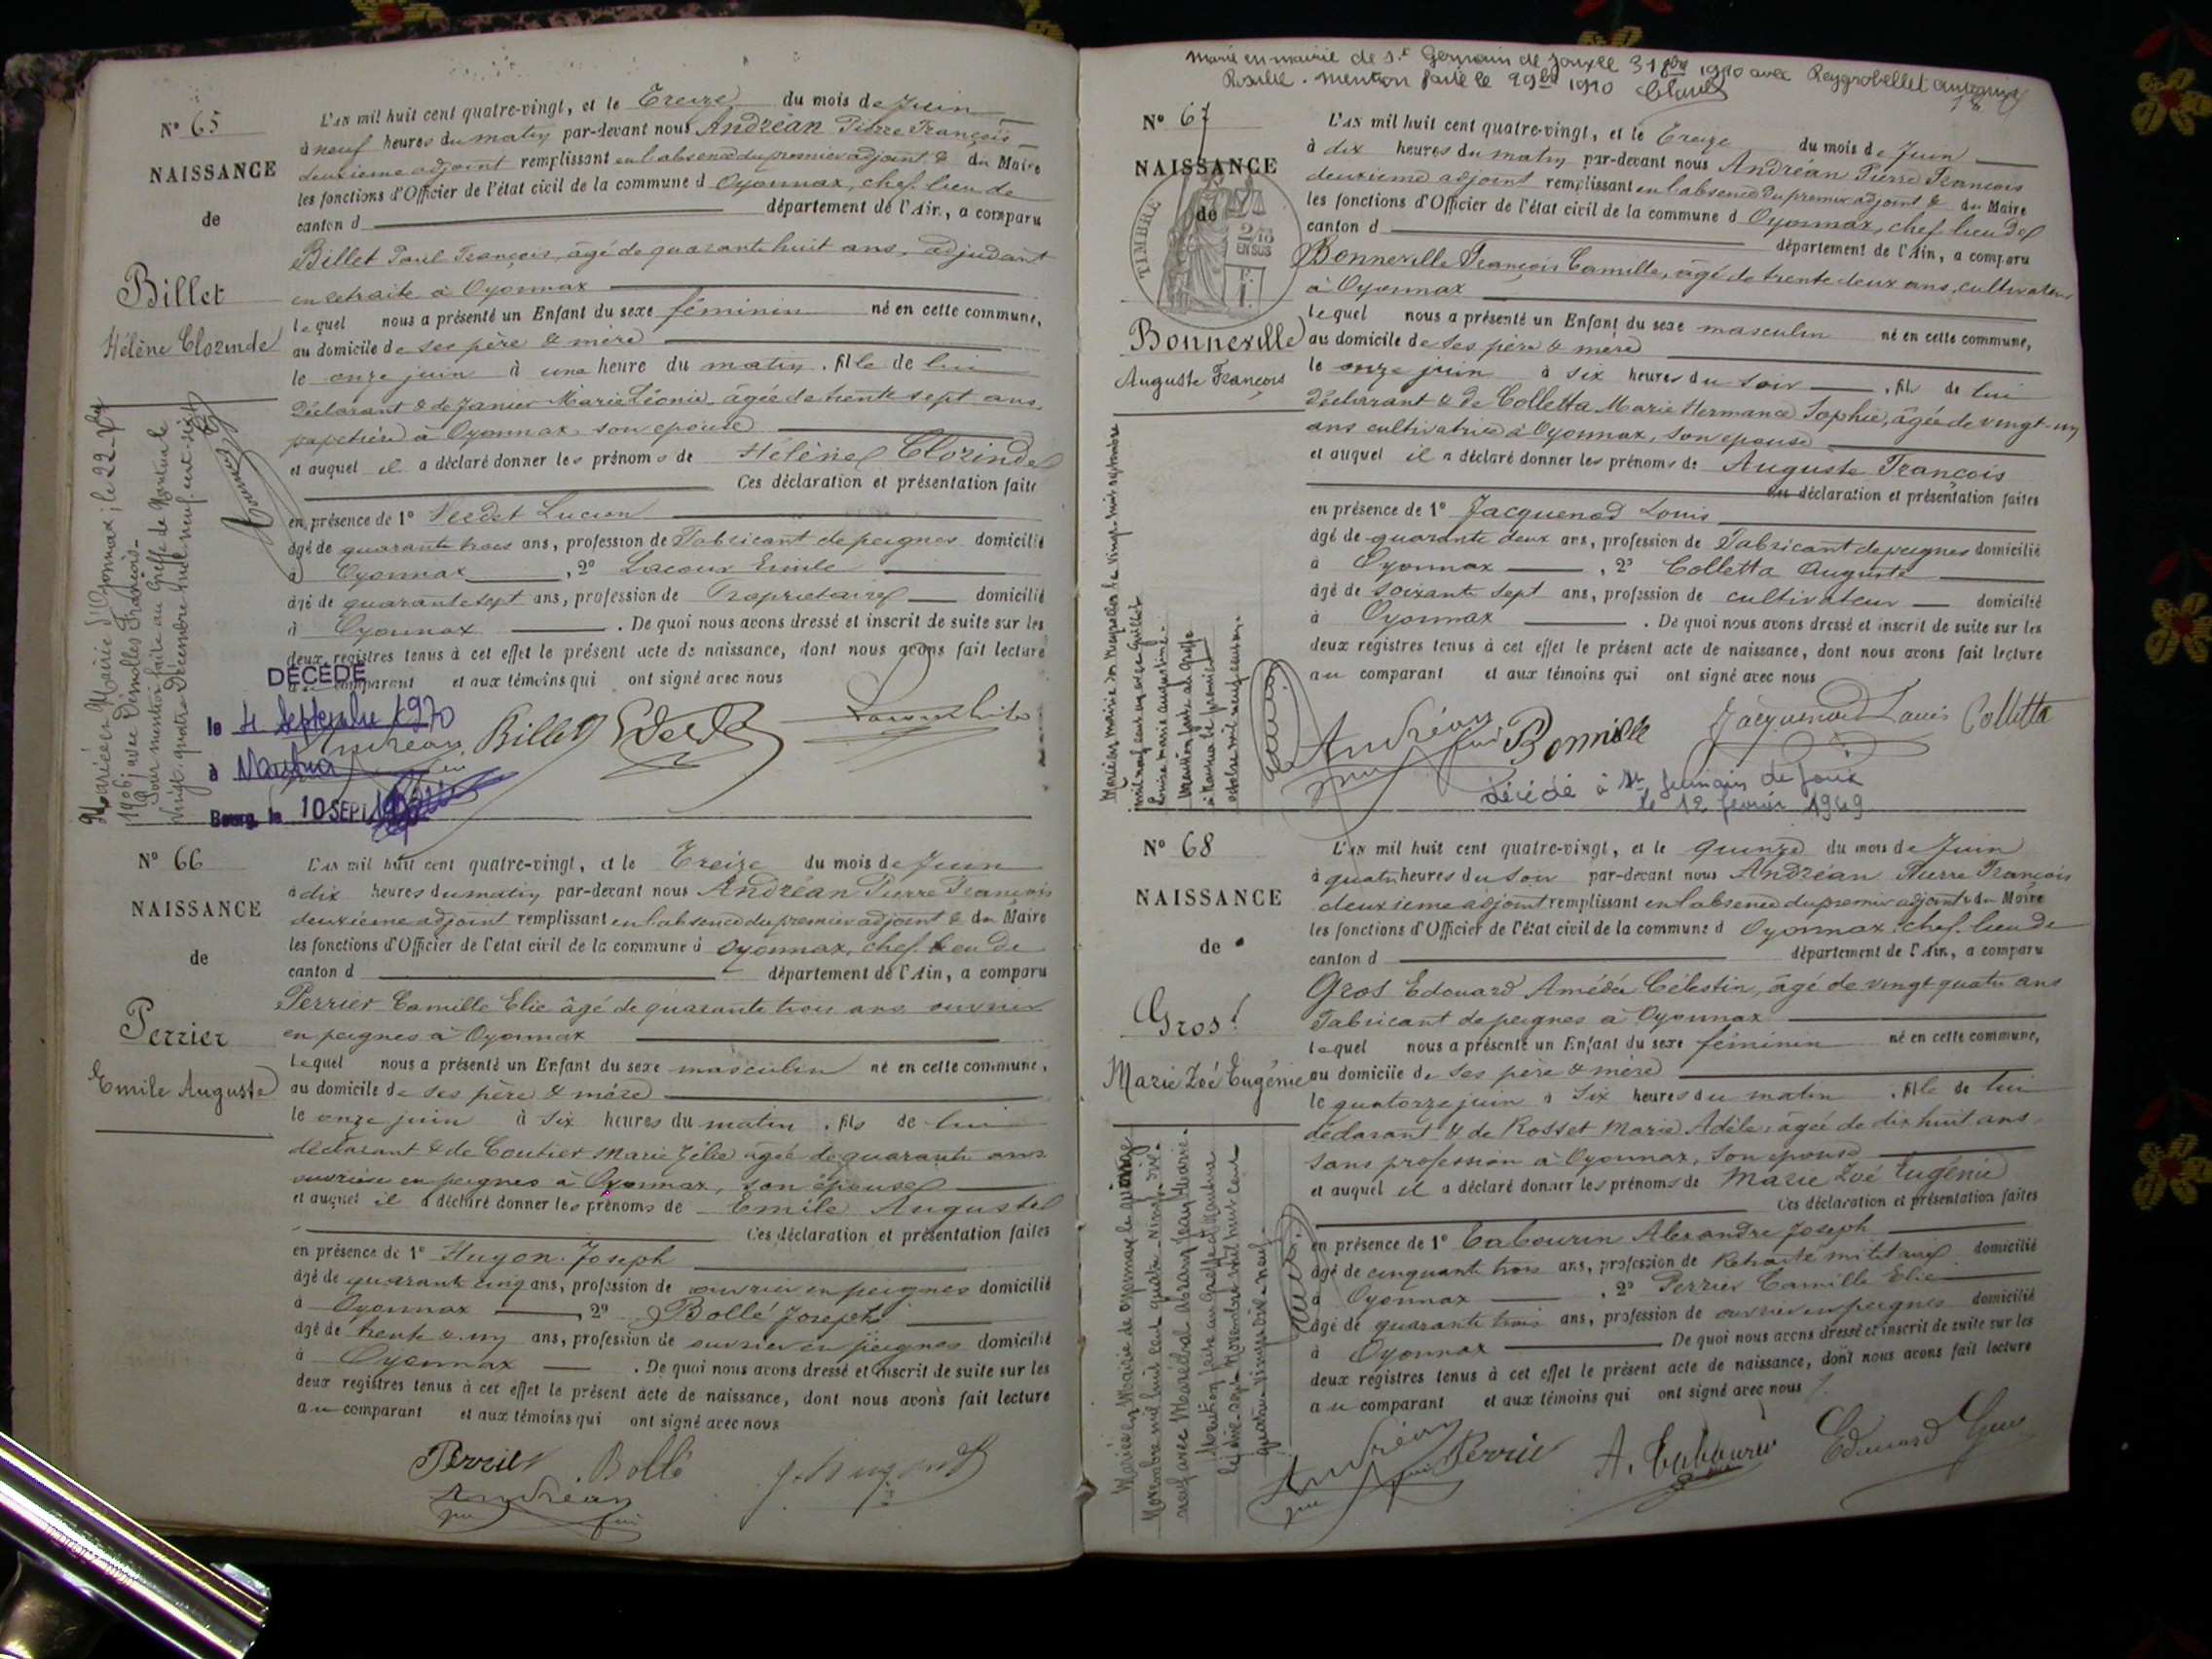 N° 65
NAISSANCE
de
Billet
Hélène Clorinde
L'AN mil huit cent quatre-vingt, et le Treize du mois de Juin
à neuf heures du matin par-devant nous Andréan Pierre François
deuxième adjoint remplissant en l'absence du premier adjoint & du Maire
les fonctions d'Officier de l'état civil de la commune d Oyonnax, chef-lieu de
canton d département de l'Ain, a comparu
Billet Paul François, âgé de quarante huit ans, adjudant
en retraite à Oyonnax
lequel nous a présenté un Enfant du sexe féminin né en cette commune,
au domicile de ses père & mère
le onze juin à une heure du matin, fille de lui
déclarant & de Janier Marie Léonie âgée de trente sept ans,
papetière à Oyonnax son épouse
et auquel il a déclaré donner les prénoms de Hélène Clorinde
Ces déclaration et présentation faites
en présence de 1° Verdet Lucien
âgé de quarante trois ans, profession de Fabricant de peignes domicilié
à Oyonnax, 2° Lacour Emile
âgé de quarante sept ans, profession de Propriétaire domicilié
à Oyonnax. De quoi nous avons dressé et inscrit de suite sur les
deux registres tenus à cet effet le présent acte de naissance, dont nous avons fait lecture
au comparant et aux témoins qui ont signé avec nous
Mariée en Mairie d'Oyonnax, le 22
1906, avec Démolles François
Pour mention faite au Greffe de Nantua le
vingt-quatre Décembre mil neuf cent six
DÉCÉDÉ
le 4 Septembre 1970
à Nantua
Bourg, le 10 SEPT
Andréan Billet
N° 66
NAISSANCE
de
Perrier
Emile Auguste
L'AN mil huit cent quatre-vingt, et le Treize du mois de Juin
à dix heures du matin par-devant nous Andréan Pierre François
deuxième adjoint remplissant en l'absence du premier adjoint & du Maire
les fonctions d'Officier de l'état civil de la commune d Oyonnax, chef-lieu de
canton d département de l'Ain, a comparu
Perrier Camille Elie âgé de quarante trois ans ouvrier
en peignes à Oyonnax
lequel nous a présenté un Enfant du sexe masculin né en cette commune,
au domicile de ses père & mère
le onze juin à six heures du matin, fils de lui
déclarant & de Coutier Marie Zélie âgée de quarante ans
ouvrière en peignes à Oyonnax, son épouse
et auquel il a déclaré donner les prénoms de Emile Auguste
Ces déclaration et présentation faites
en présence de 1° Hugon Joseph
âgé de quarante cinq ans, profession de ouvrier en peignes domicilié
à Oyonnax 2° Bollé Joseph
âgé de trente & un ans, profession de ouvrier en peignes domicilié
à Oyonnax. De quoi nous avons dressé et inscrit de suite sur les
deux registres tenus à cet effet le présent acte de naissance, dont nous avons fait lecture
au comparant et aux témoins qui ont signé avec nous
Perrier Bollé
Andréan
Marié en mairie de St Germain de Joux le 31 1910 avec Reygrobellet
Rosalie. Mention faite le 1910
N° 67
NAISSANCE
de
TIMBRE
2/10
EN SUS
Bonneville
Auguste François
L'AN mil huit cent quatre-vingt, et le Treize du mois de Juin
à dix heures du matin par-devant nous Andréan Pierre François
deuxième adjoint remplissant en l'absence du premier adjoint & du Maire
les fonctions d'Officier de l'état civil de la commune d Oyonnax, chef-lieu de
canton d département de l'Ain, a comparu
Bonneville François Camille, âgé de trente deux ans, cultivateur
à Oyonnax
lequel nous a présenté un Enfant du sexe masculin né en cette commune,
au domicile de ses père & mère
le onze juin à six heures du soir, fils de lui
déclarant & de Colletta Marie Hermance Sophie, âgée de vingt-un
ans cultivatrice à Oyonnax, son épouse
et auquel il a déclaré donner les prénoms de Auguste François
Ces déclaration et présentation faites
en présence de 1° Jacquenod Louis
âgé de quarante deux ans, profession de Fabricant de peignes domicilié
à Oyonnax, 2° Colletta Auguste
âgé de soixante sept ans, profession de cultivateur domicilié
à Oyonnax. De quoi nous avons dressé et inscrit de suite sur les
deux registres tenus à cet effet le présent acte de naissance, dont nous avons fait lecture
au comparant et aux témoins qui ont signé avec nous
Andréan Bonneville Jacquenod Louis Colletta
décédé à St Germain de Joux
le 12 février 1949
N° 68
NAISSANCE
de
Gros
Marie Zoé Eugénie
L'AN mil huit cent quatre-vingt, et le quinze du mois de Juin
à quatre heures du soir par-devant nous Andréan Pierre François
deuxième adjoint remplissant en l'absence du premier adjoint & du Maire
les fonctions d'Officier de l'état civil de la commune d Oyonnax, chef-lieu de
canton d département de l'Ain, a comparu
Gros Edouard Amédée Célestin, âgé de vingt quatre ans
Fabricant de peignes à Oyonnax
lequel nous a présenté un Enfant du sexe féminin né en cette commune,
au domicile de ses père & mère
le quatorze juin à six heures du matin, fille de lui
déclarant & de Rosset Marie Adèle, âgée de dix huit ans
sans profession à Oyonnax, son épouse
et auquel il a déclaré donner les prénoms de Marie Zoé Eugénie
Ces déclaration et présentation faites
en présence de 1° Cabourin Alexandre Joseph
âgé de cinquante trois ans, profession de Retraité militaire domicilié
à Oyonnax, 2° Perrier Camille Elie
âgé de quarante trois ans, profession de ouvrier en peignes domicilié
à Oyonnax De quoi nous avons dressé et inscrit de suite sur les
deux registres tenus à cet effet le présent acte de naissance, dont nous avons fait lecture
au comparant et aux témoins qui ont signé avec nous
Mariée en Mairie de Oyonnax le quinze
Novembre mil huit cent quatre-vingt-dix-
neuf avec Maréchal Jean Marie.
Mention faite au Greffe de Nantua
le dix-sept Novembre mil huit cent
quatre vingt dix-neuf.
Andréan Perrier A. Cabourin Edouard Gros